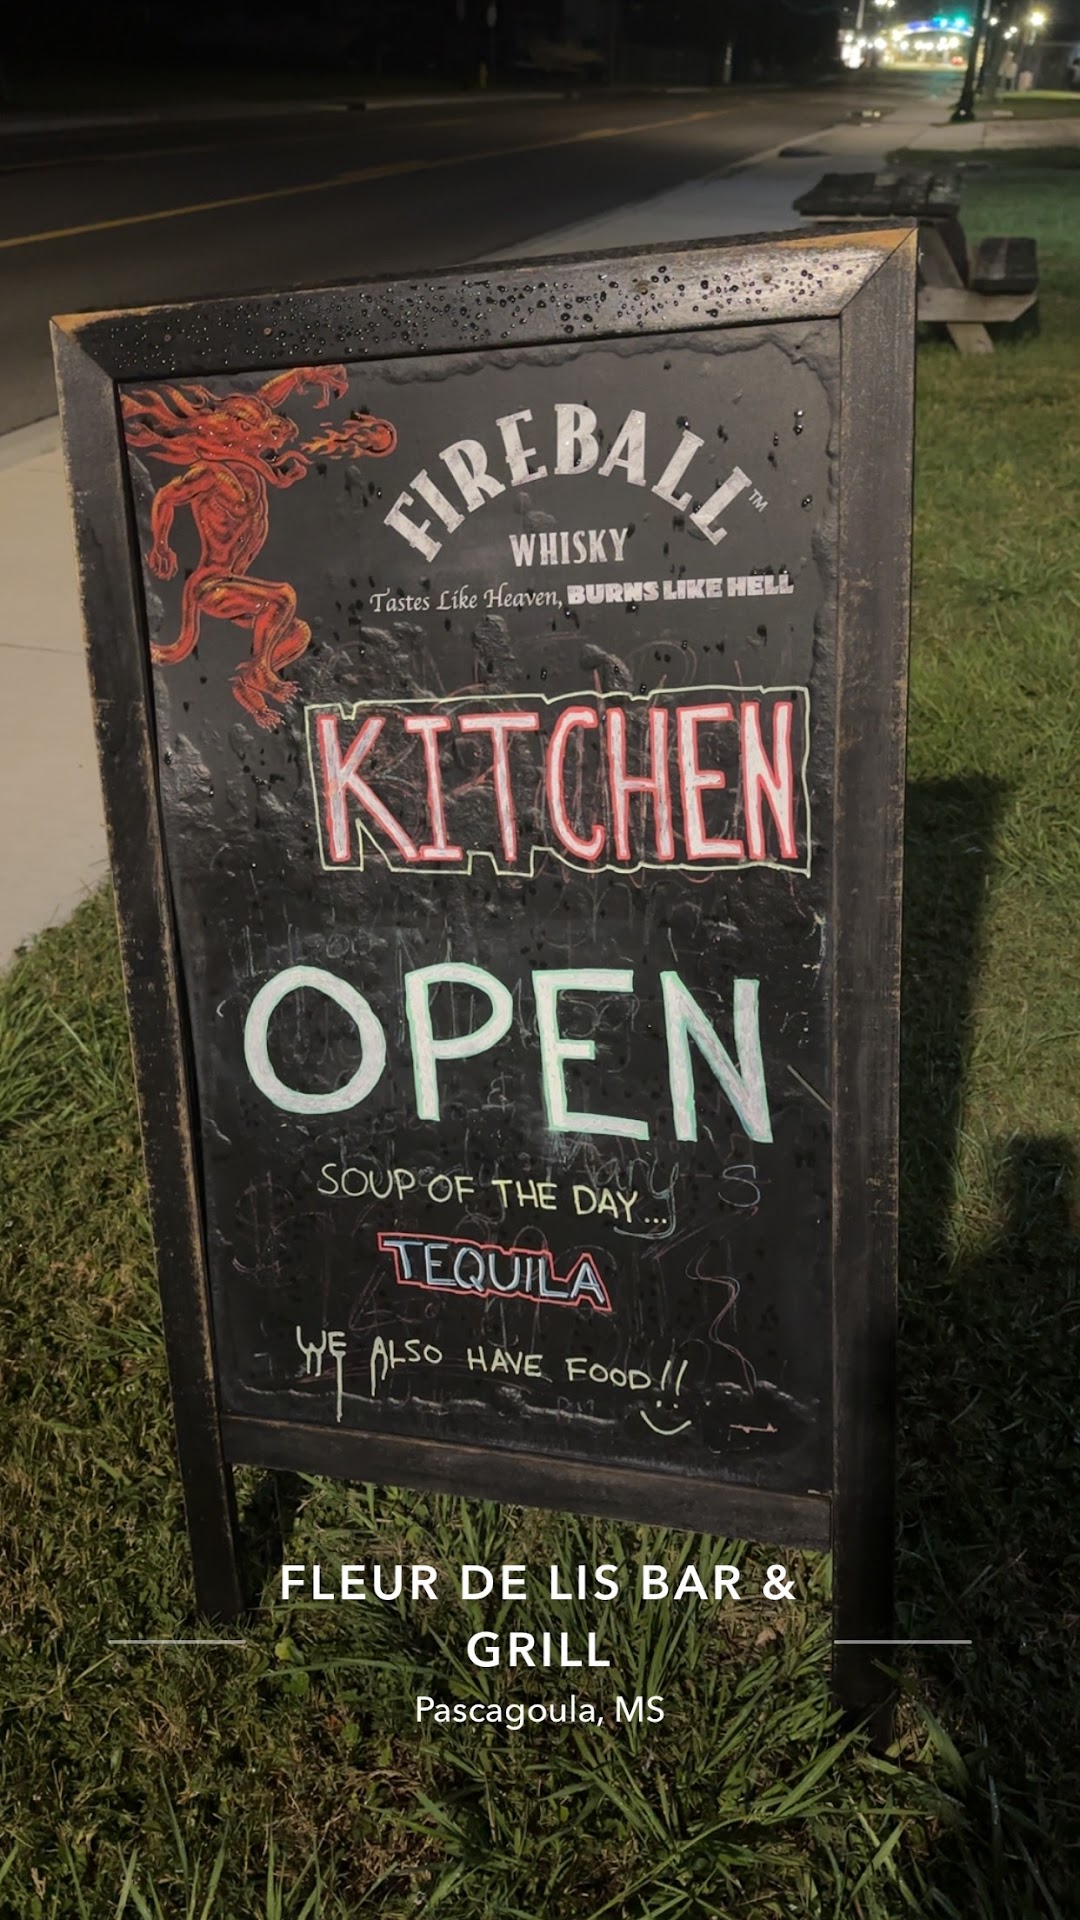 FIREBALL™
WHISKY
Tastes Like Heaven, BURNS LIKE HELL
KITCHEN
OPEN
SOUP OF THE DAY...
TEQUILA
WE ALSO HAVE FOOD!!
FLEUR DE LIS BAR &
GRILL
Pascagoula, MS